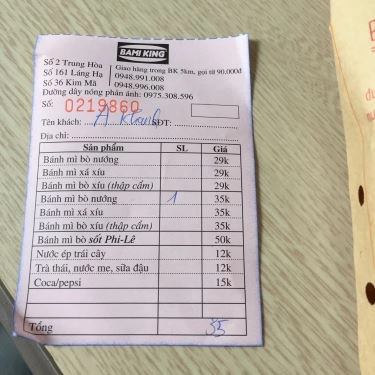 BAMI KING
Số 2 Trung Hòa
Số 161 Láng Hạ
Số 36 Kim Mã
Giao hàng trong BK 5km, gọi từ 90.000đ
0948.991.008
0948.996.008
Đường dây nóng phản ánh: 0975.308.596
Số: 0219860
Tên khách: A SĐT:
Địa chỉ:
Sản phẩm SL Giá
Bánh mì bò nướng 29k
Bánh mì xá xíu 29k
Bánh mì bò xíu (thập cẩm) 29k
Bánh mì bò nướng 1 35k
Bánh mì xá xíu 35k
Bánh mì bò xíu (thập cẩm) 35k
Bánh mì bò sốt Phi-Lê 50k
Nước ép trái cây 12k
Trà thái, nước me, sữa đậu 12k
Coca/pepsi 15k
Tổng 35